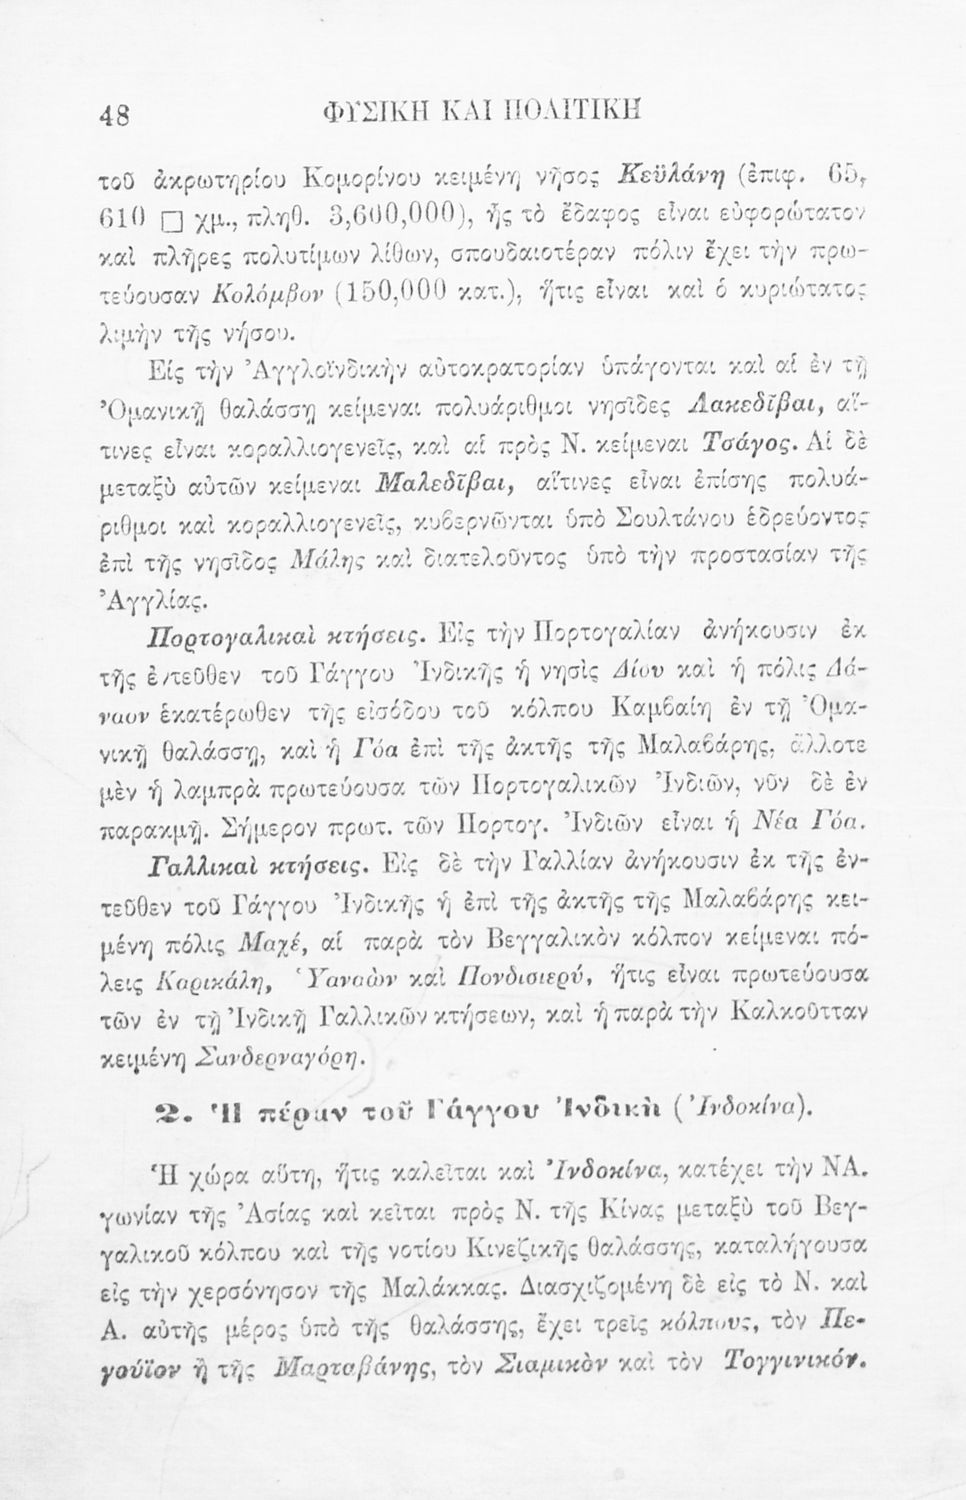 48 ΦΥΣΙΚΗ ΚΑΙ ΠΟΛΙΤΙΚΗ
τοῦ ἀκρωτηρίου Κομορίνου κειμένη νῆσος Κεϋλάνη (ἐπιφ. 65,
610 □ χμ., πληθ. 3,600,000), ἧς τὸ ἔδαφος εἶναι εὐφορώτατον
καὶ πλῆρες πολυτίμων λίθων, σπουδαιοτέραν πόλιν ἔχει τὴν πρω-
τεύουσαν Κολόμβον (150,000 κατ.), ἥτις εἶναι καὶ ὁ κυριώτατος
λιμὴν τῆς νήσου.
Εἰς τὴν Ἀγγλοϊνδικὴν αὐτοκρατορίαν ὑπάγονται καὶ αἱ ἐν τῇ
Ὀμανικῇ θαλάσσῃ κείμεναι πολυάριθμοι νησῖδες Λακεδῖβαι, αἵ-
τινες εἶναι κοραλλιογενεῖς, καὶ αἱ πρὸς Ν. κείμεναι Τσάγος. Αἱ δὲ
μεταξὺ αὐτῶν κείμεναι Μαλεδῖβαι, αἵτινες εἶναι ἐπίσης πολυά-
ριθμοι καὶ κοραλλιογενεῖς, κυβερνῶνται ὑπὸ Σουλτάνου ἑδρεύοντος
ἐπὶ τῆς νησῖδος Μάλης καὶ διατελοῦντος ὑπὸ τὴν προστασίαν τῆς
Ἀγγλίας.
Πορτογαλικαὶ κτήσεις. Εἰς τὴν Πορτογαλίαν ἀνήκουσιν ἐκ
τῆς ἐντεῦθεν τοῦ Γάγγου Ἰνδικῆς ἡ νησὶς Δίου καὶ ἡ πόλις Δά-
ναον ἑκατέρωθεν τῆς εἰσόδου τοῦ κόλπου Καμβαίη ἐν τῇ Ὀμα-
νικῇ θαλάσσῃ, καὶ ἡ Γόα ἐπὶ τῆς ἀκτῆς τῆς Μαλαβάρης, ἄλλοτε
μὲν ἡ λαμπρὰ πρωτεύουσα τῶν Πορτογαλικῶν Ἰνδιῶν, νῦν δὲ ἐν
παρακμῇ. Σήμερον πρωτ. τῶν Πορτογ. Ἰνδιῶν εἶναι ἡ Νέα Γόα.
Γαλλικαὶ κτήσεις. Εἰς δὲ τὴν Γαλλίαν ἀνήκουσιν ἐκ τῆς ἐν-
τεῦθεν τοῦ Γάγγου Ἰνδικῆς ἡ ἐπὶ τῆς ἀκτῆς τῆς Μαλαβάρης κει-
μένη πόλις Μαχέ, αἱ παρὰ τὸν Βεγγαλικὸν κόλπον κείμεναι πό-
λεις Καρικάλη, Ὑαναὼν καὶ Πονδισιερύ, ἥτις εἶναι πρωτεύουσα
τῶν ἐν τῇ Ἰνδικῇ Γαλλικῶν κτήσεων, καὶ ἡ παρὰ τὴν Καλκοῦτταν
κειμένη Σανδερναγόρη.
2. Ἡ πέραν τοῦ Γάγγου Ἰνδικὴ (Ἰνδοκίνα).
Ἡ χώρα αὕτη, ἥτις καλεῖται καὶ Ἰνδοκίνα, κατέχει τὴν ΝΑ.
γωνίαν τῆς Ἀσίας καὶ κεῖται πρὸς Ν. τῆς Κίνας μεταξὺ τοῦ Βεγ-
γαλικοῦ κόλπου καὶ τῆς νοτίου Κινεζικῆς θαλάσσης, καταλήγουσα
εἰς τὴν χερσόνησον τῆς Μαλάκκας. Διασχιζομένη δὲ εἰς τὸ Ν. καὶ
Α. αὐτῆς μέρος ὑπὸ τῆς θαλάσσης, ἔχει τρεῖς κόλπους, τὸν Πε-
γούϊον ἢ τῆς Μαρταβάνης, τὸν Σιαμικὸν καὶ τὸν Τογγινικόν.